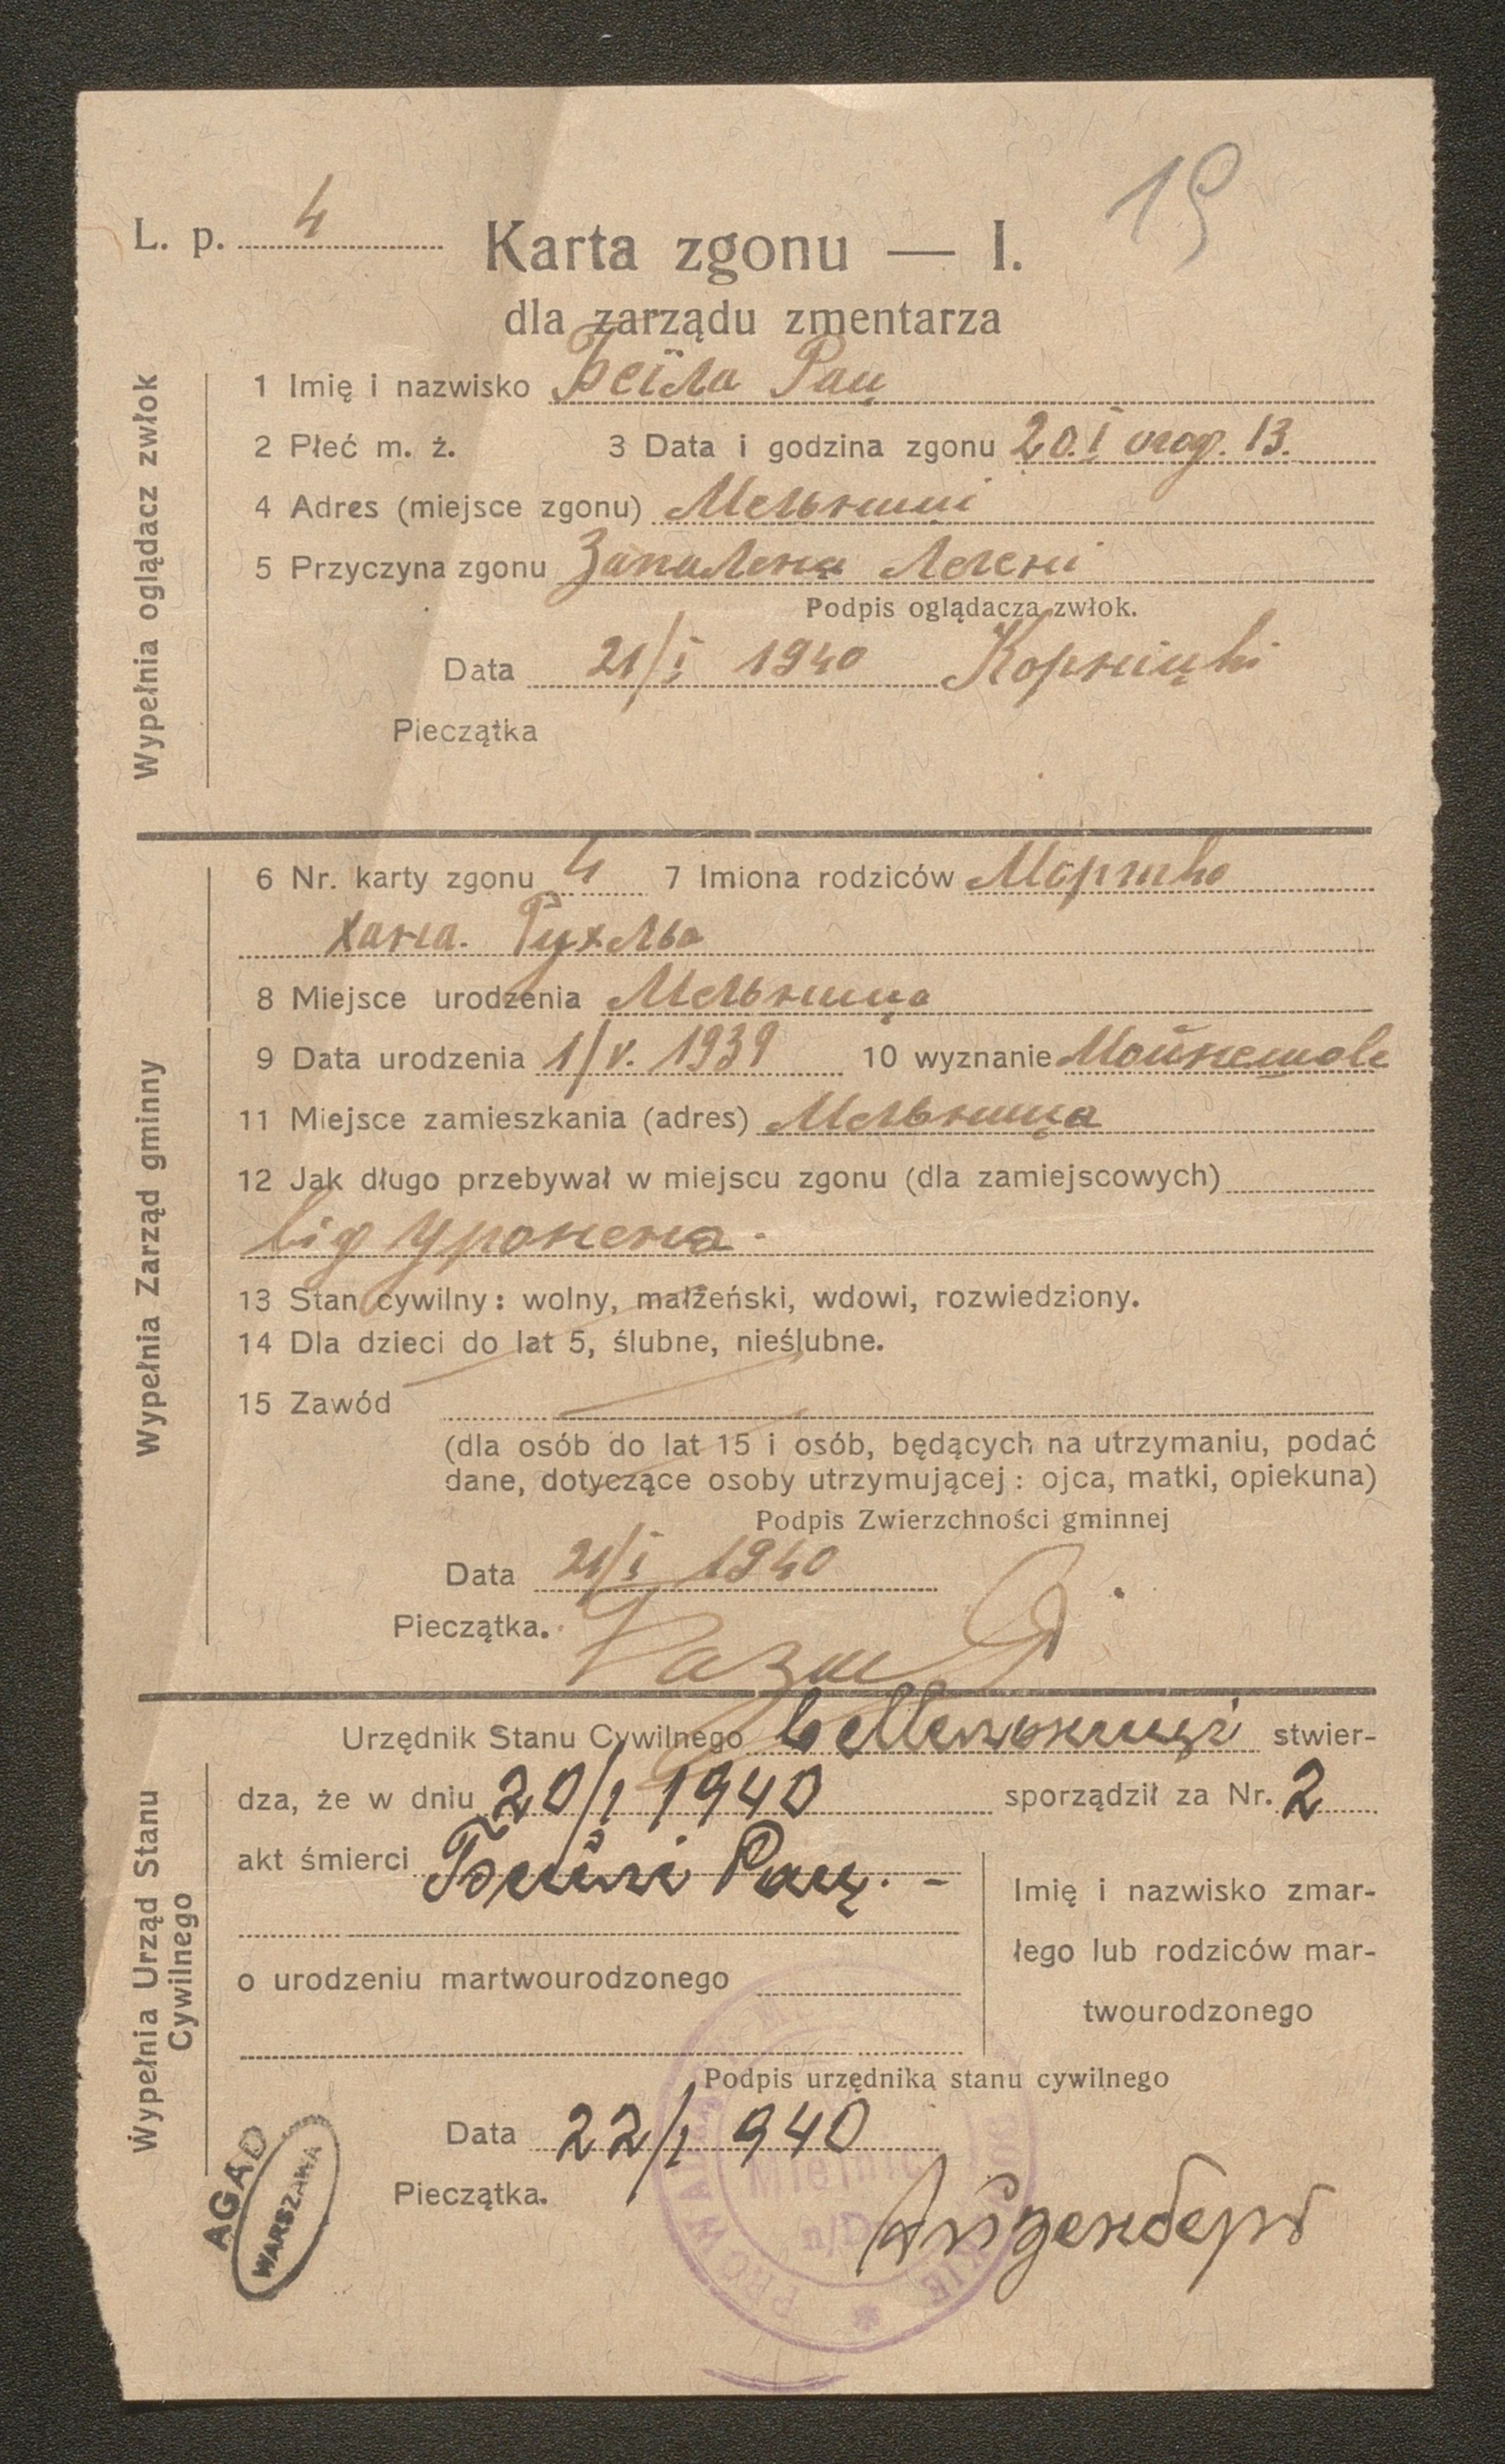 19
L. p. 4
Karta zgonu — I.
dla zarządu zmentarza
Wypełnia oglądacz zwłok
1 Imię i nazwisko Беїла Рац
2 Płeć m. ż. 3 Data i godzina zgonu 20.I год. 13.
4 Adres (miejsce zgonu) Мельниці
5 Przyczyna zgonu Запалення легені
Podpis oglądacza zwłok.
Data 21/I 1940
Pieczątka
Wypełnia Zarząd gminny
6 Nr. karty zgonu 4 7 Imiona rodziców
Хана. Рухльа
8 Miejsce urodzenia Мельница
9 Data urodzenia 1/V. 1939 10 wyznanie
11 Miejsce zamieszkania (adres) Мельница
12 Jak długo przebywał w miejscu zgonu (dla zamiejscowych)
від уроженя.
13 Stan cywilny: wolny, małżeński, wdowi, rozwiedziony.
14 Dla dzieci do lat 5, ślubne, nieślubne.
15 Zawód
(dla osób do lat 15 i osób, będących na utrzymaniu, podać
dane, dotyczące osoby utrzymującej: ojca, matki, opiekuna)
Podpis Zwierzchności gminnej
Data 21/I 1940
Pieczątka.
Wypełnia Urząd Stanu
Cywilnego
Urzędnik Stanu Cywilnego в Мельниці stwier-
dza, że w dniu 20/I 1940 sporządził za Nr. 2
akt śmierci Бейлі Рац. -
Imię i nazwisko zmar-
łego lub rodziców mar-
twourodzonego
o urodzeniu martwourodzonego
Podpis urzędnika stanu cywilnego
Data 22/I 940
Pieczątka.
Mielnicy
n/D
Айзенберг
AGAD
WARSZAWA